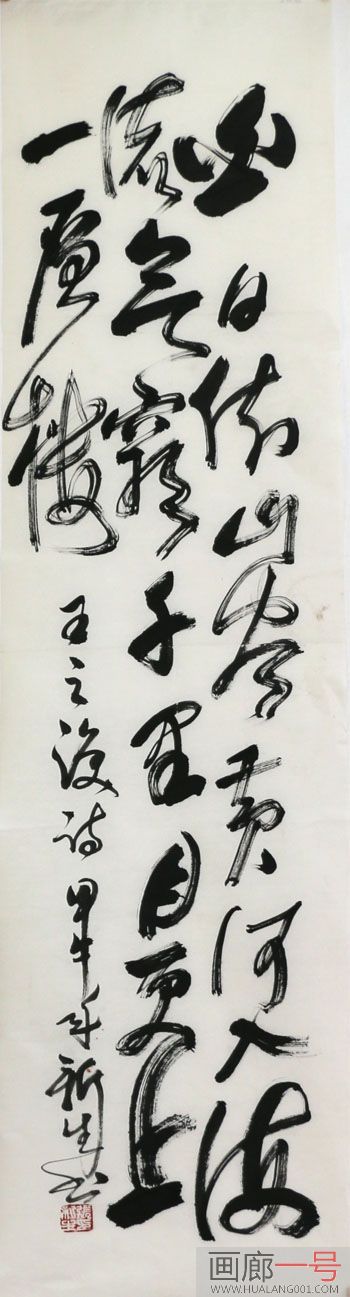 白日依山尽黄河入海
流欲穷千里目更上
一层楼
王之涣诗甲午年新生书
画廊一号
WWW.HUALANG001.COM